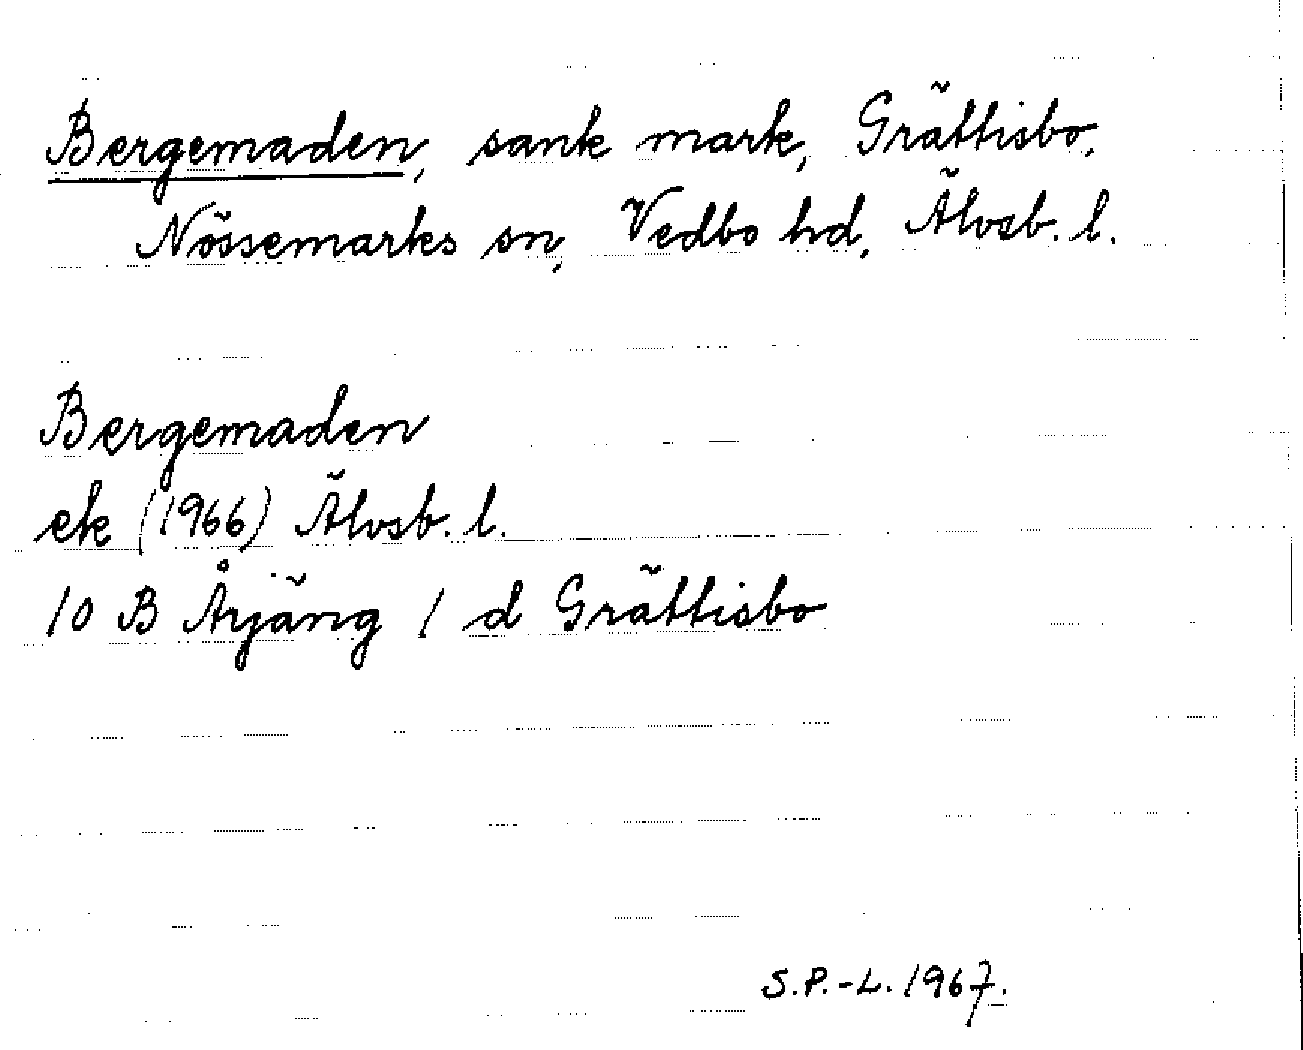 Bergemaden, sank mark, Grättisbo,
Nössemarks sn, Vedbo hd, Älvsb. l.
Bergemaden
ek (1966) Älvsb. l.
10 B Årjäng 1 d Grättisbo
S.P.-L. 1967.